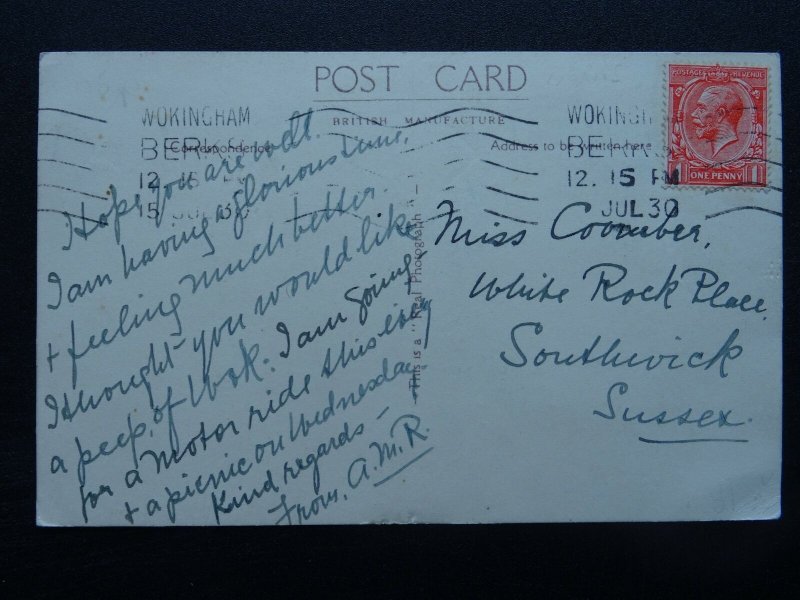 POST CARD
BRITISH MANUFACTURE
Correspondence
Address to be written here
WOKINGHAM
BERKS
12. 15 PM
15 JUL 30
WOKING
BERKS
12. 15 PM
JUL 30
POSTAGE REVENUE
1 ONE PENNY 1
This is a "Real Photograph"
Hope you are well.
I am having a glorious time,
+ feeling much better.
I thought you would like
a peep of Wok: I am going
for a motor ride this evg
+ a picnic on Wednesday
Kind regards –
From, A.M.R.
Miss Coomber,
White Rock Place,
Southwick
Sussex.